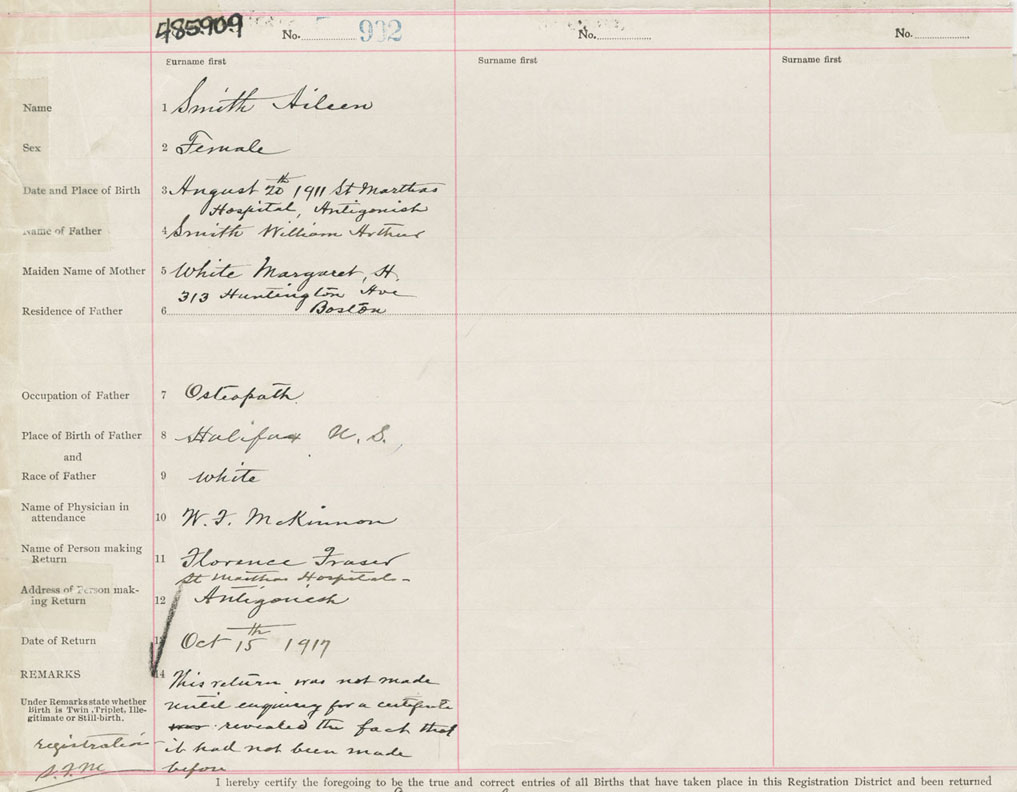 485909
No. 902
No.
No.
Surname first
Surname first
Surname first
Name 1 Smith Aileen
Sex 2 Female
Date and Place of Birth 3 August 20th 1911 St Marthas
Hospital, Antigonish
Name of Father 4 Smith William Arthur
Maiden Name of Mother 5 White Margaret, H.
313 Huntington Ave
Residence of Father 6 Boston
Occupation of Father 7 Osteopath
Place of Birth of Father 8 Halifax N. S.
and
Race of Father 9 White
Name of Physician in
attendance 10 W. F. McKinnon
Name of Person making
Return 11 Florence Fraser
St Marthas Hospital
Address of Person mak-
ing Return 12 Antigonish
Date of Return 13 Oct 15th 1917
REMARKS 14 This return was not made
Under Remarks state whether
Birth is Twin, Triplet, Ille-
gitimate or Still-birth.
until enquiry for a certificate
was revealed the fact that
registration it had not been made
S.F.M. before
I hereby certify the foregoing to be the true and correct entries of all Births that have taken place in this Registration District and been returned